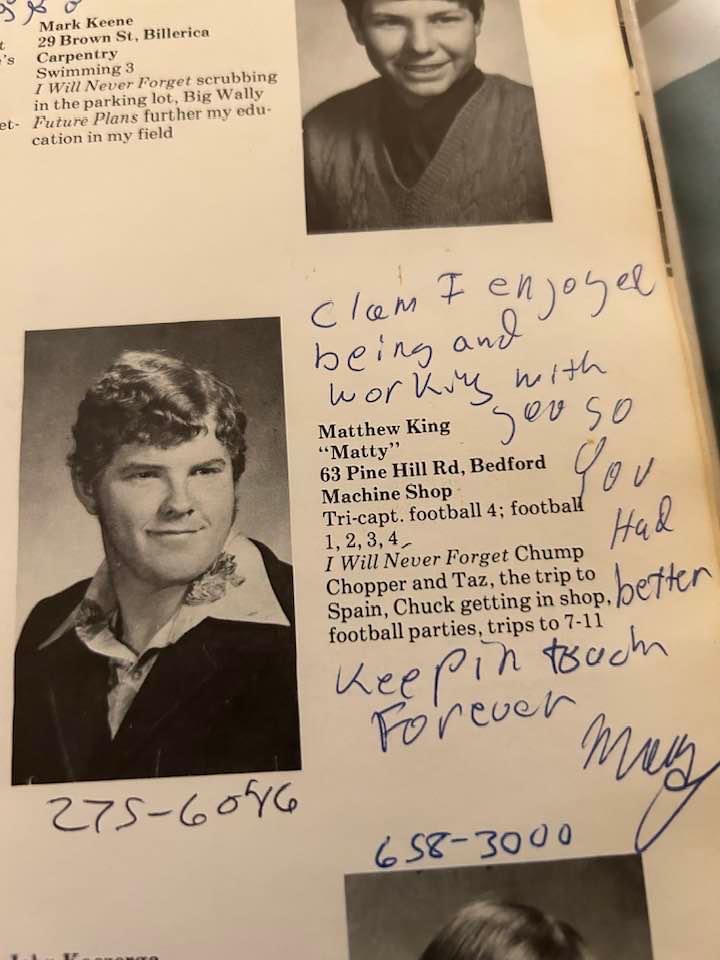 Mark Keene
29 Brown St, Billerica
Carpentry
Swimming 3
I Will Never Forget scrubbing
in the parking lot, Big Wally
Future Plans further my edu-
cation in my field
t
's
et-
Clam I enjoyed
being and
working with
you so
You
Had
better
Keep in touch
Forever
Matthew King
"Matty"
63 Pine Hill Rd, Bedford
Machine Shop
Tri-capt. football 4; football
1, 2, 3, 4
I Will Never Forget Chump
Chopper and Taz, the trip to
Spain, Chuck getting in shop,
football parties, trips to 7-11
658-3000